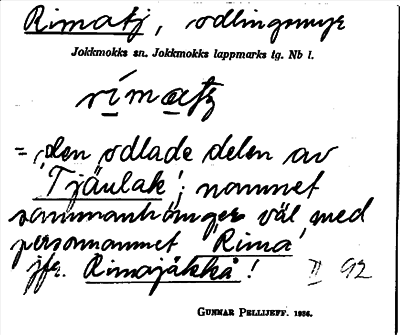 Rimatj, odlingsmyr
Jokkmokks sn. Jokkmokks lappmarks tg. Nb l.
rímatʒ
= den odlade delen av
'Tjäulak'; namnet
sammanhänger väl med
personnamnet 'Rima'
jfr. Rimajåkkå! II 92
GUNNAR PELLIJEFF. 1936.